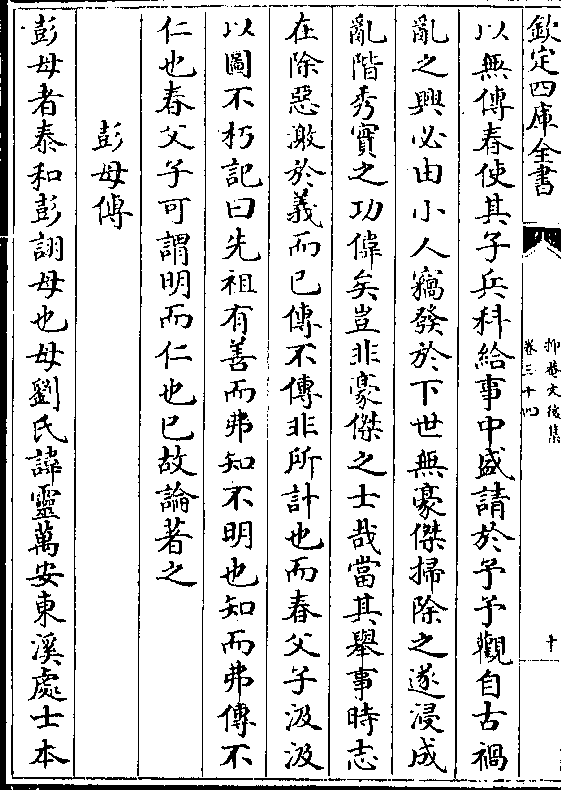 欽定四庫全書
抑菴文後集
卷三十四
十
以無傳春使其子兵科給事中盛請於予予觀自古禍
亂之興必由小人竊發於下世無豪傑掃除之遂浸成
亂階秀實之功偉矣豈非豪傑之士哉當其舉事時志
在除惡激於義而已傳不傳非所計也而春父子汲汲
以圖不朽記曰先祖有善而弗知不明也知而弗傳不
仁也春父子可謂明而仁也已故論著之
彭母傳
彭母者泰和彭詡母也母劉氏諱靈萬安東溪處士本